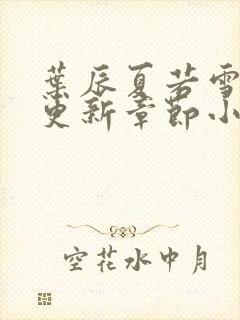 葉辰夏若雪
更新章節小
空花水中月